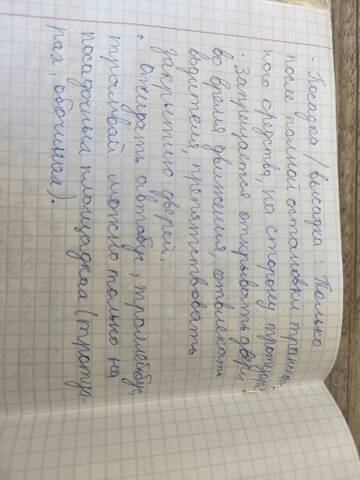 · Посадка / высадка: Только
после полной остановки транспорт-
ного средства, на сторону тротуара
· Запрещается открывать двери
во время движения, отвлекать
водителя, препятствовать
закрытию дверей.
· Ожидать автобус, троллейбус,
трамвай можно только на
посадочных площадках (тротуа-
рах, обочинах).